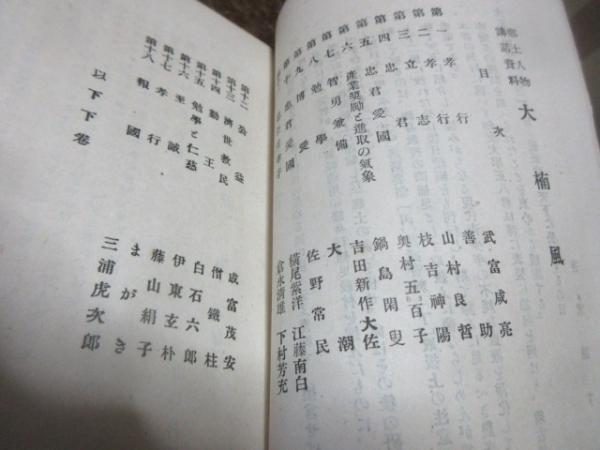 郷土人物
講話資料 大楠風
目次
第一 孝行 武富咸亮
第二 孝行 善助
第三 立志 山村良哲
第四 忠君 枝吉神陽
第五 忠君愛國 奥村五百子
第六 産業奬勵と進取の氣象 鍋島閑叟
第七 智勇兼備 吉田新作大佐
第八 勉學 大潮
第九 博愛 佐野常民
第十 忠君愛國 横尾紫洋 江藤南白
倉永清雄 下村芳充
第十二 公益 成富茂安
第十三 濟世救民 僧鐵柱
第十四 勤王 白石六郎
第十五 勉學と仁慈 伊東玄朴
第十六 至誠 藤山絹子
第十七 孝行 まがき
第十八 報國 三浦虎次郎
以下下卷